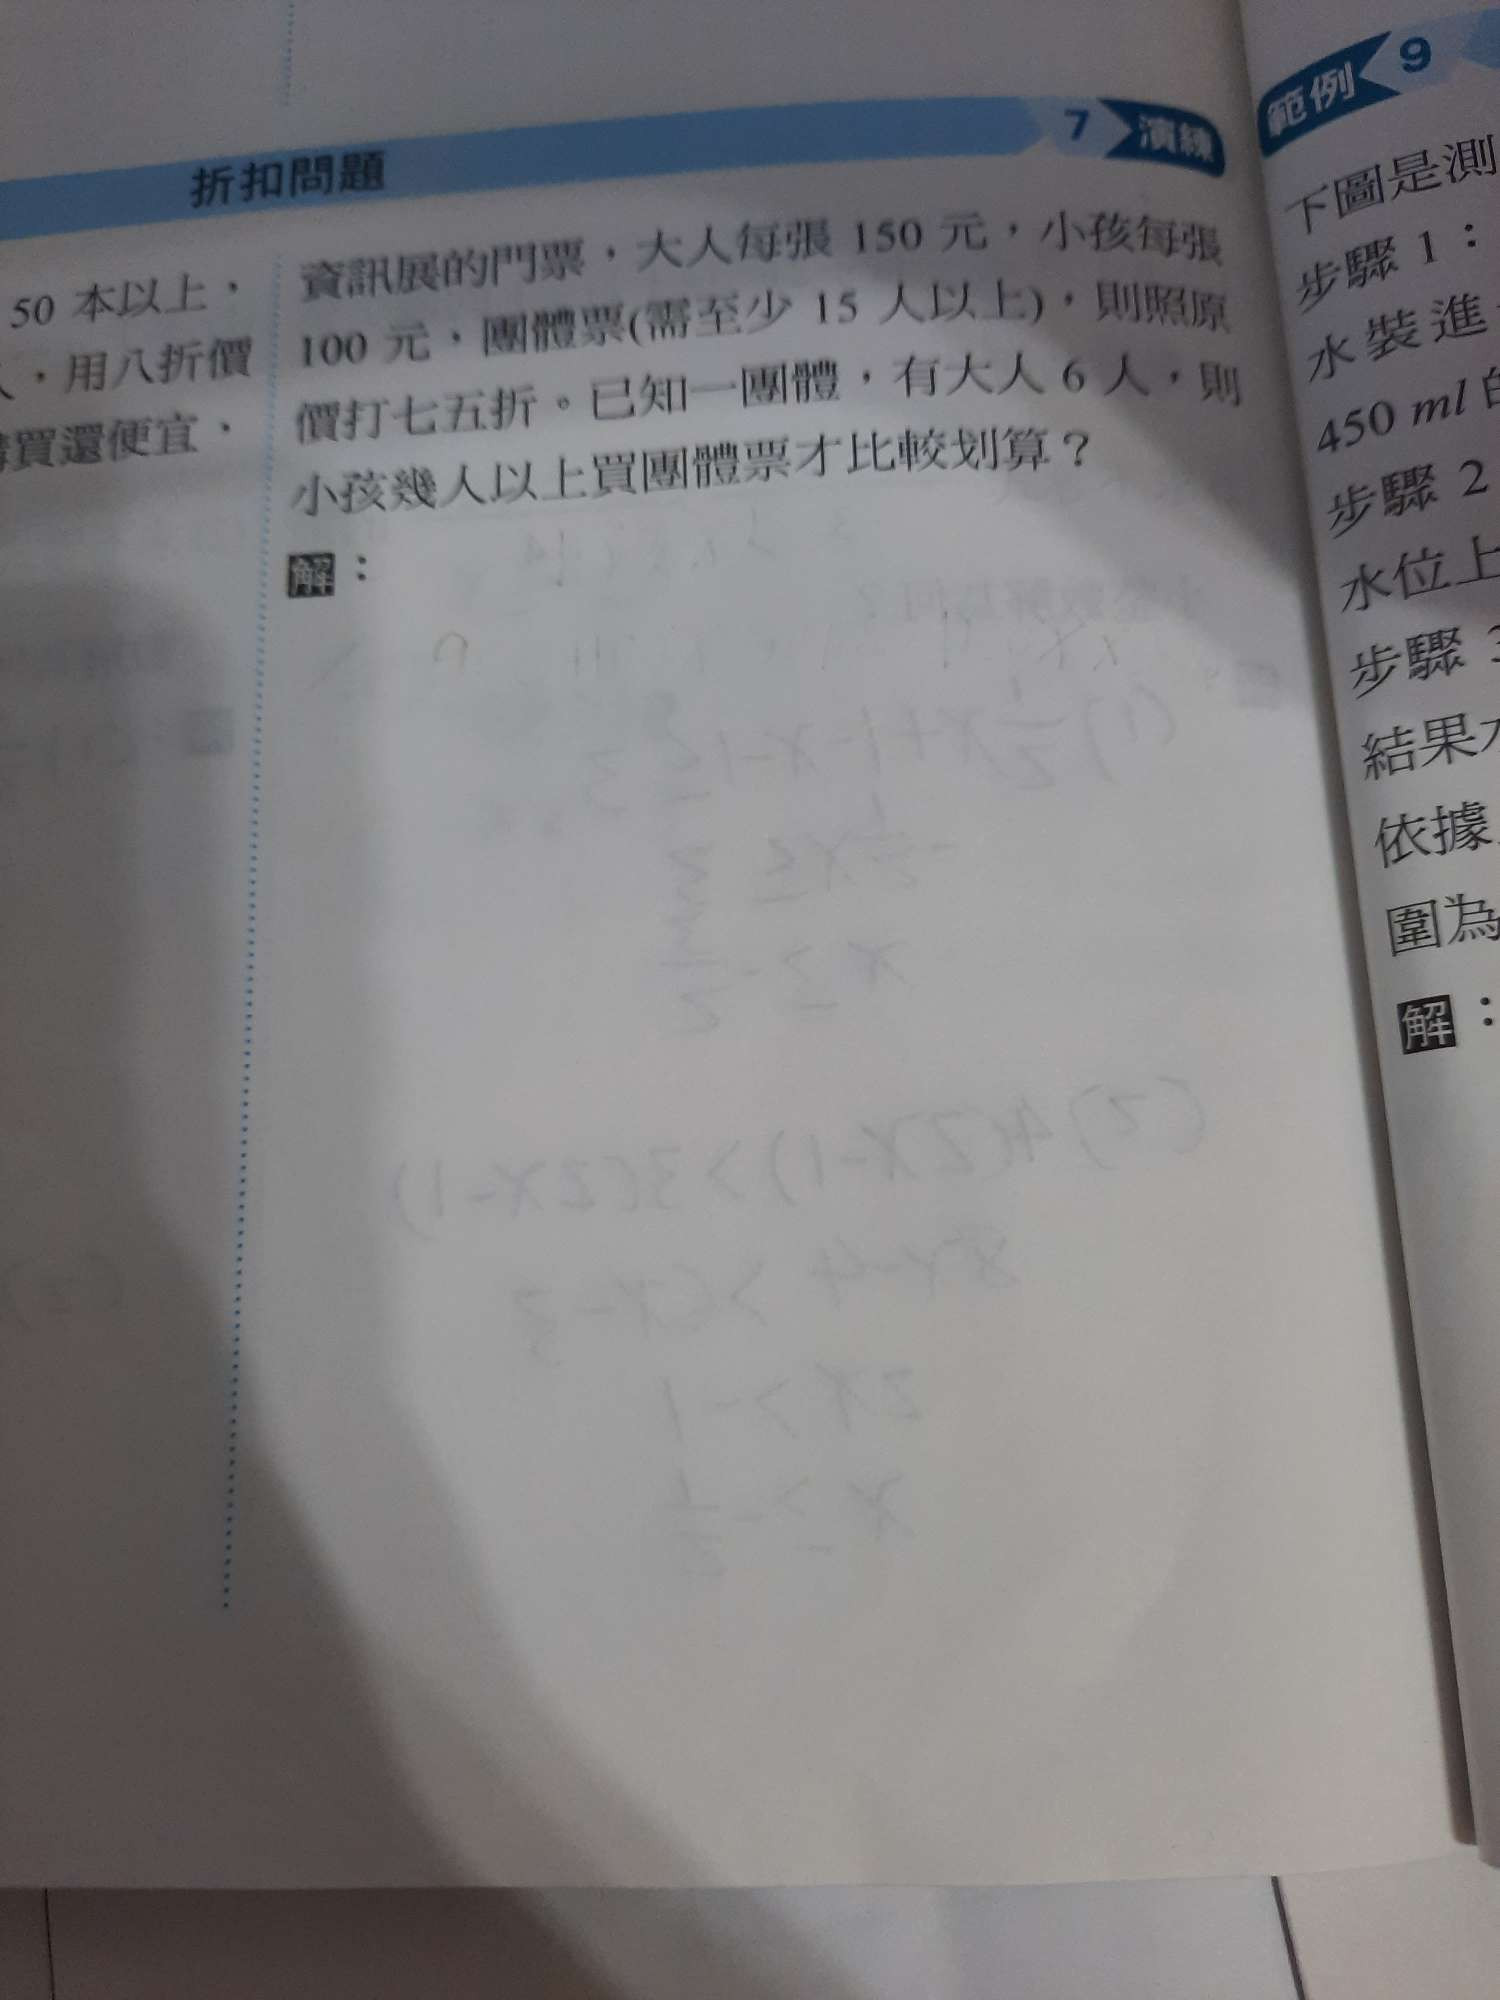 折扣問題
7 演練
50 本以上，
，用八折價
買還便宜，
資訊展的門票，大人每張 150 元，小孩每張
100 元，團體票(需至少 15 人以上)，則照原
價打七五折。已知一團體，有大人 6 人，則
小孩幾人以上買團體票才比較划算？
解：
範例 9
下圖是測
步驟 1：
水裝進
450 ml
步驟 2
水位上
步驟 3
結果
依據
圍為
解：